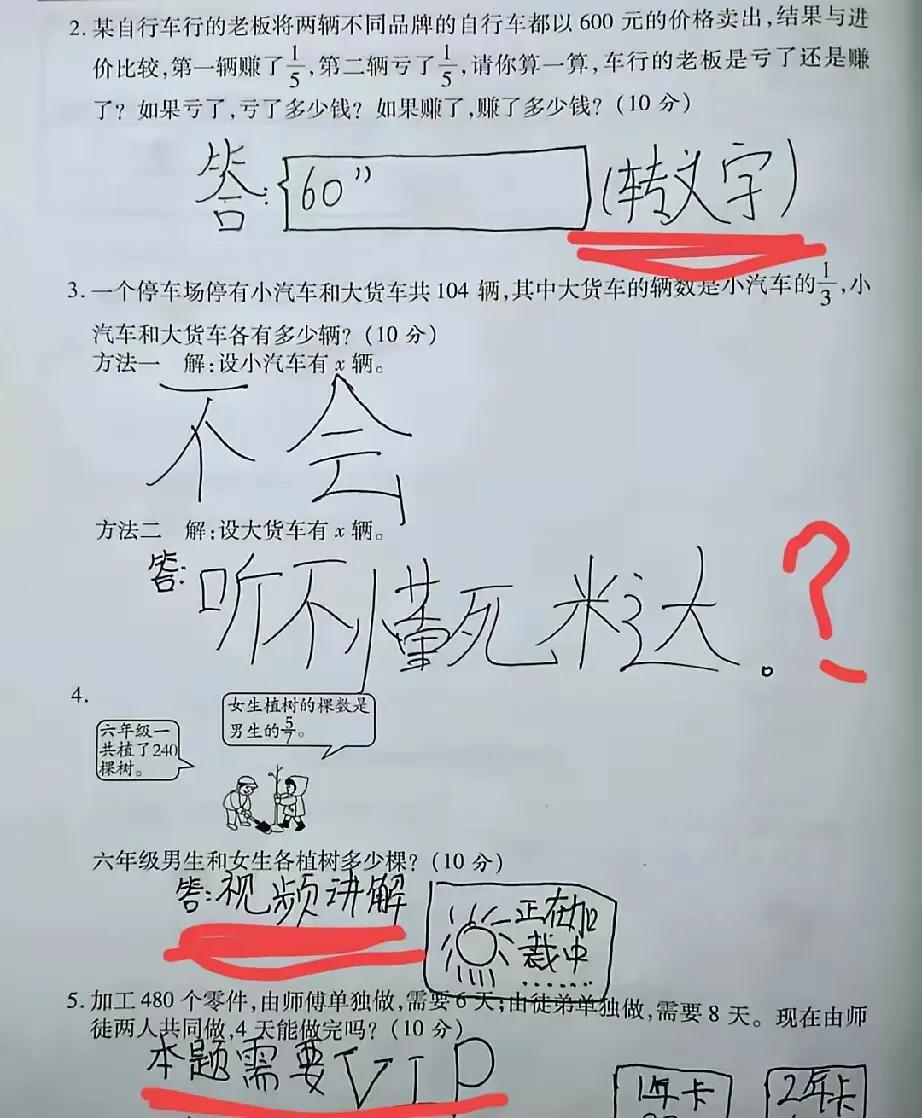 2. 某自行车行的老板将两辆不同品牌的自行车都以 600 元的价格卖出,结果与进
价比较,第一辆赚了1/5,第二辆亏了1/5,请你算一算,车行的老板是亏了还是赚
了? 如果亏了,亏了多少钱? 如果赚了,赚了多少钱? (10 分)
答: 60" (转文字)
3. 一个停车场停有小汽车和大货车共 104 辆,其中大货车的辆数是小汽车的1/3,小
汽车和大货车各有多少辆? (10 分)
方法一 解:设小汽车有 x 辆。
不会
方法二 解:设大货车有 x 辆。
答: 听不懂死米达。 ?
4.
女生植树的棵数是
男生的5/7。
六年级一
共植了240
棵树。
六年级男生和女生各植树多少棵? (10 分)
答:视频讲解
正在加
裁中
......
5. 加工 480 个零件,由师傅单独做,需要 6 天;由徒弟单独做,需要 8 天。现在由师
徒两人共同做,4 天能做完吗? (10 分)
本题需要VIP
1年卡 2年卡